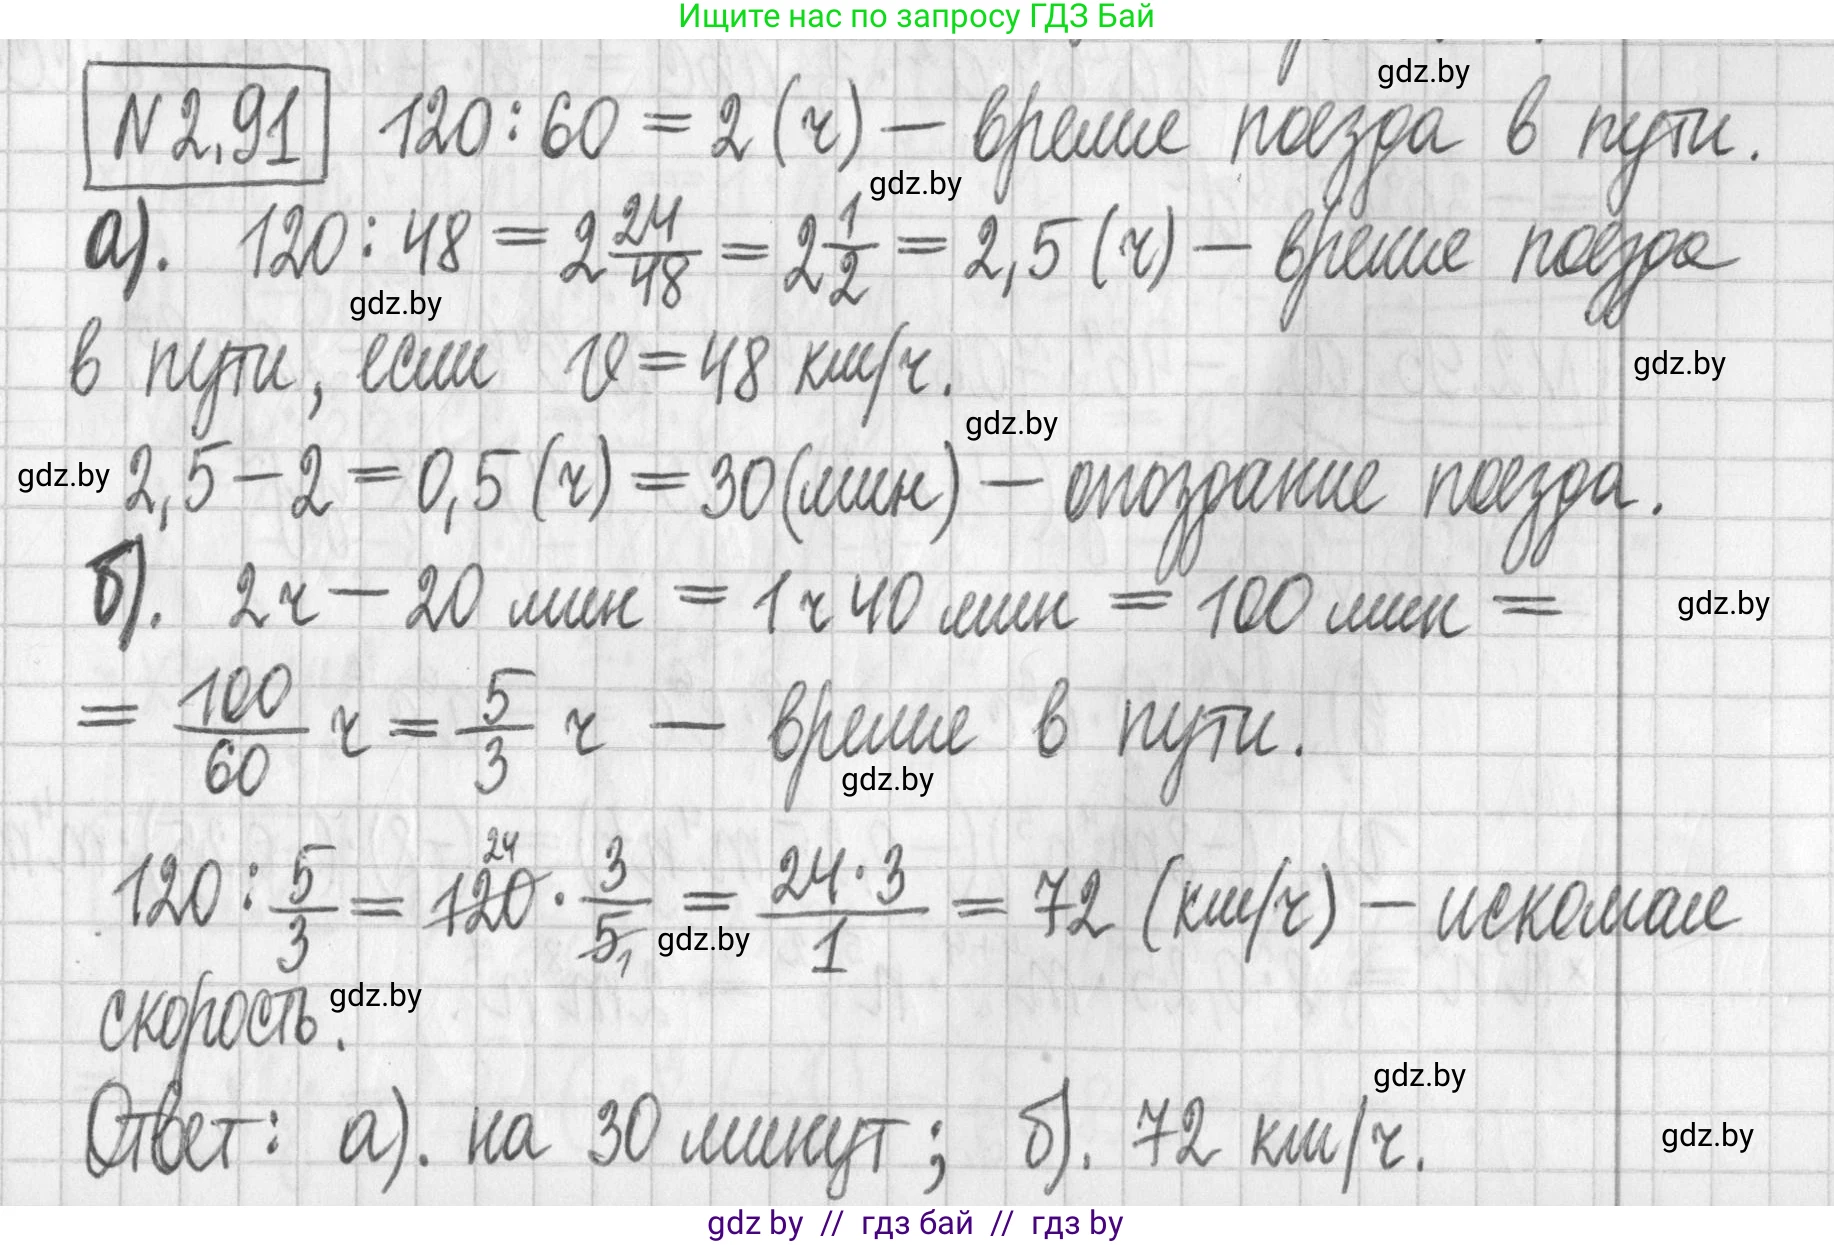 Ищите нас по запросу ГДЗ Бай
gdz.by
N 2.91 120 : 60 = 2 (ч) — время поезда в пути.
gdz.by
а). 120 : 48 = 2 24/48 = 2 1/2 = 2,5 (ч) — время поезда
gdz.by
в пути, если v = 48 км/ч.
gdz.by
gdz.by
gdz.by
2,5 — 2 = 0,5 (ч) = 30 (мин) — опоздание поезда.
б). 2 ч — 20 мин = 1 ч 40 мин = 100 мин =
gdz.by
= 100/60 ч = 5/3 ч — время в пути.
gdz.by
120 : 5/3 = 120 24 · 3/5 1 = 24 · 3/1 = 72 (км/ч) — искомая
gdz.by
скорость.
gdz.by
gdz.by
Ответ: а). на 30 минут; б). 72 км/ч.
gdz.by
gdz by // гдз бай // гдз by